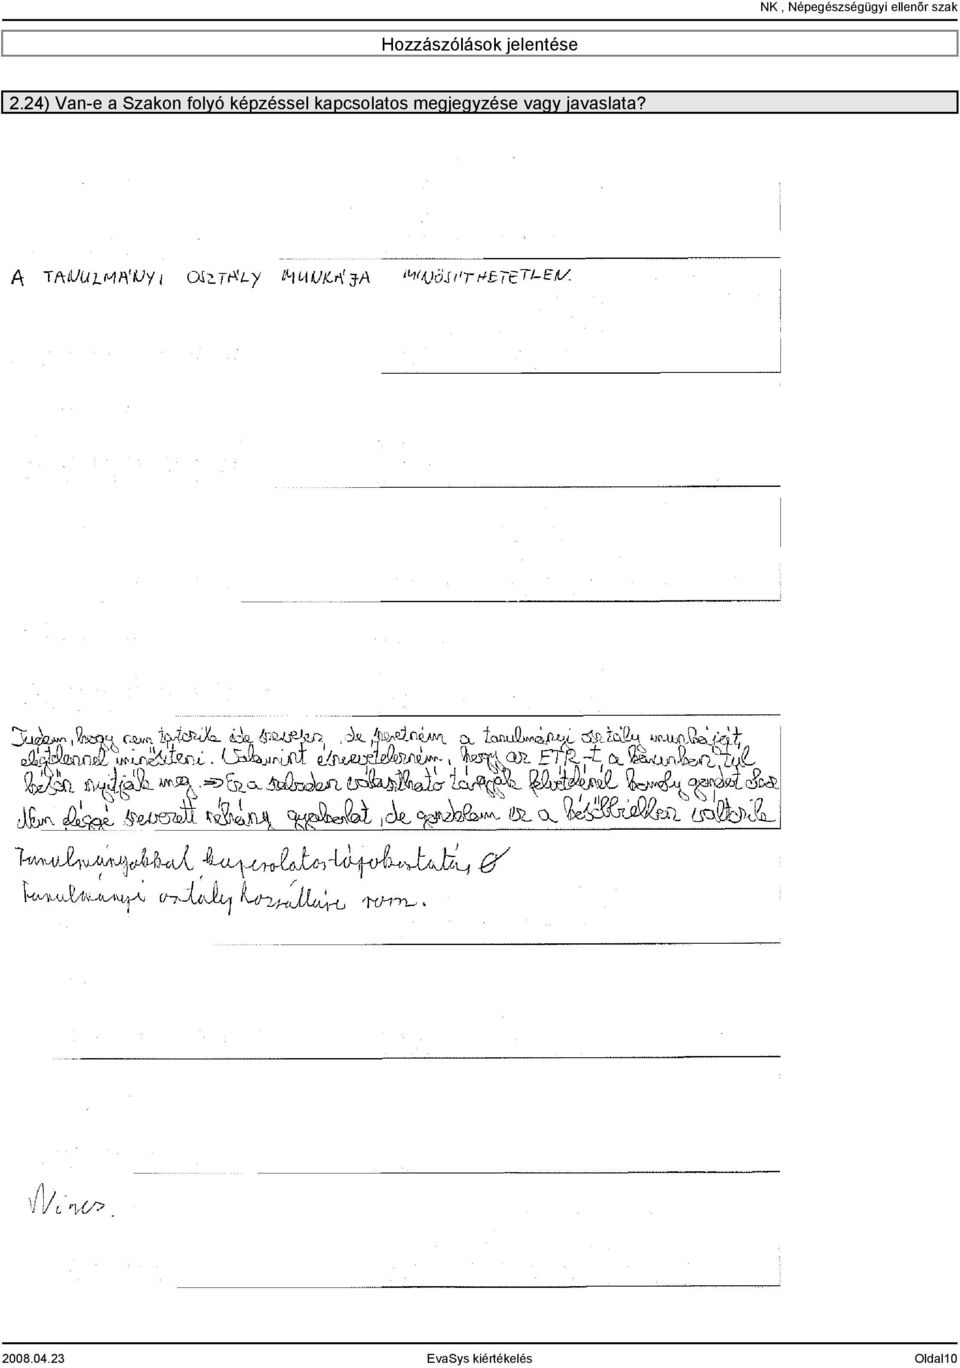 NK , Népegészségügyi ellenõr szak
Hozzászólások jelentése
2.24) Van-e a Szakon folyó képzéssel kapcsolatos megjegyzése vagy javaslata?
A TANULMÁNYI OSZTÁLY MUNKÁJA MINŐSÍTHETETLEN.
Tudom, hogy nem tartozik ide szervesen, de szeretném a tanulmányi osztály munkáját
elégtelennel minősíteni. Valamint észrevételezném, hogy az ETR-t a kárunkban túl
későn nyitják meg. ⇒ Ez a szabadon választható tárgyak felvételénél komoly gondot okoz
Nem eléggé szervezett néhány gyakorlat, de gondolom ez a későbbiekben változik
Tanulmányokkal kapcsolatos tájékoztatás Ø
Tanulmányi osztály hozzáállása rossz.
Nincs.
2008.04.23 EvaSys kiértékelés Oldal10